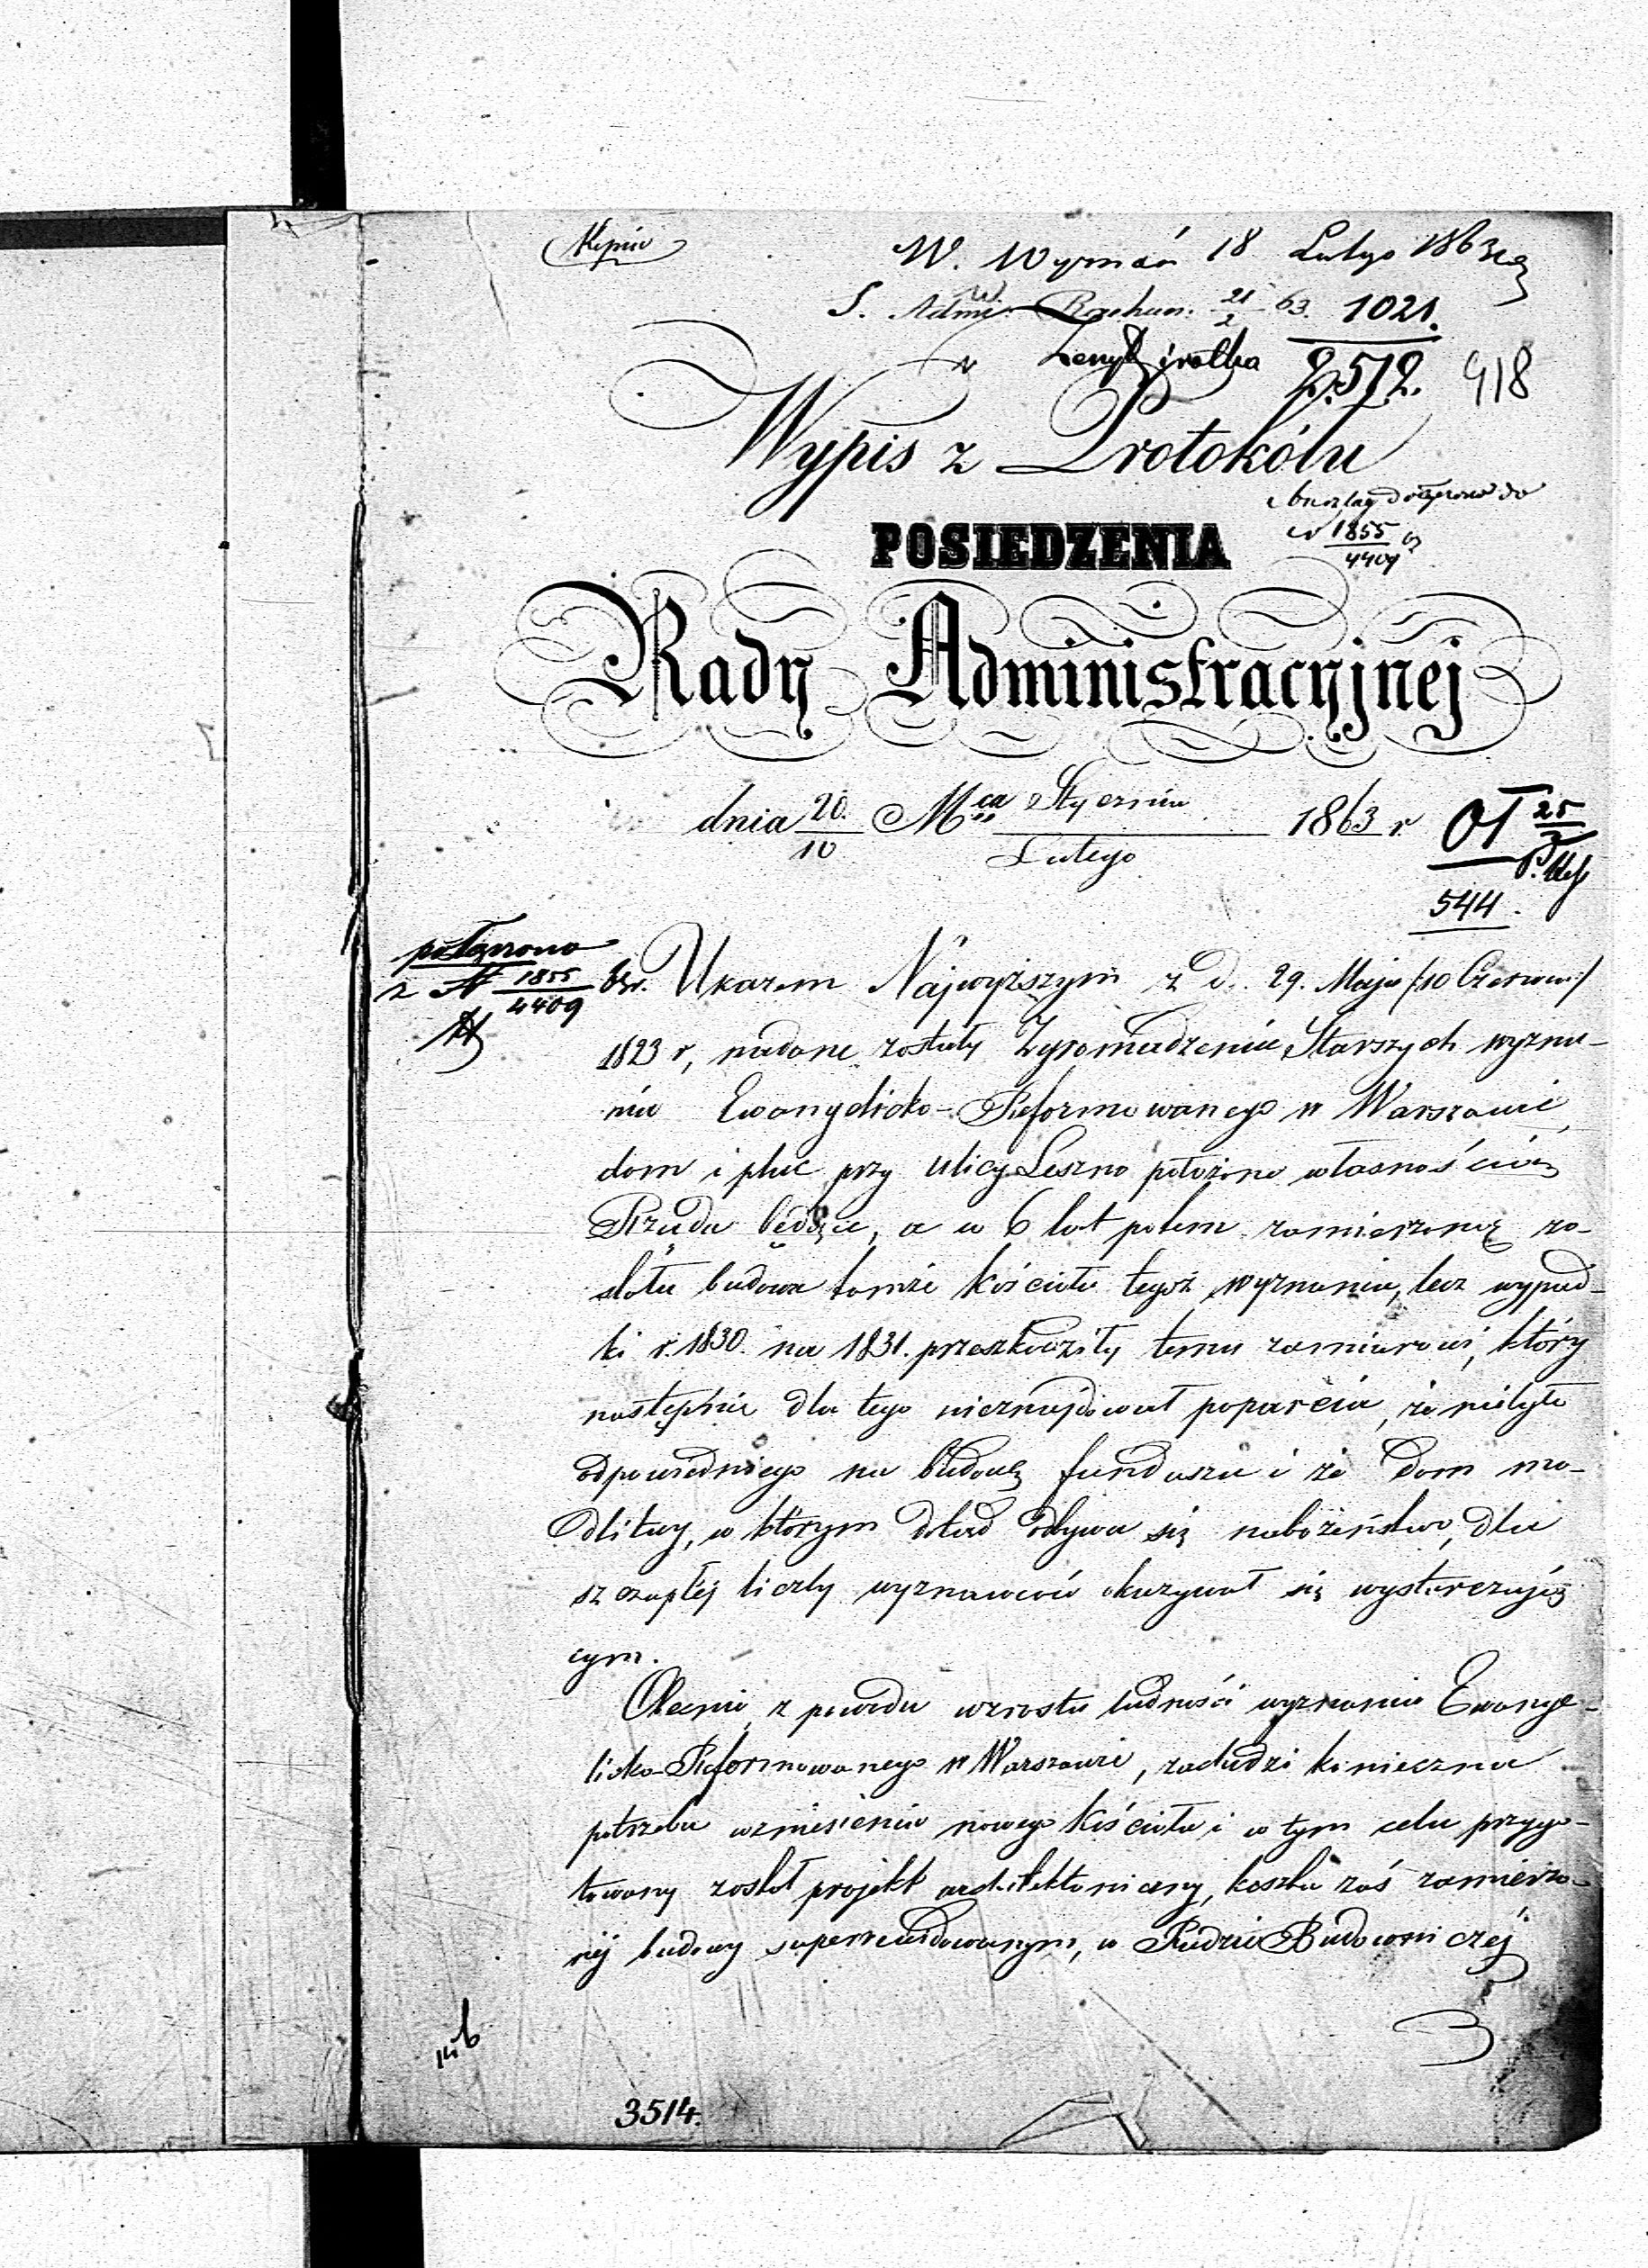 Kopia
W. Wyznań 18 Lutego 1863
S. Adm. Rachun. 21/2 63. 1021.
2.512. 918
Wypis z Protokólu
do
1855
4409
POSIEDZENIA
Rady Administracyjnej
dnia 20./10 Mca Stycznia/Lutego 1863 r
OT 25/2
544.
połączono
z N 1855/4409
Ukazem Najwyższym z d. 29. Maja (10 Czerwca)
1823 r, nadane zostały Zgromadzeniu Starszych wyzna-
nia Ewangelicko-Reformowanego w Warszawie,
dom i plac przy ulicy Leszno położone własnością
Rządu będące, a w 6 lat potem zamierzoną zo-
stała budowa tamże kościoła tegoż wyznania, lecz wypad-
ki r. 1830. na 1831. przeszkodziły temu zamiarowi, który
następnie dla tego nieznajdował poparcia, że niebyło
odpowiedniego na budowę funduszu i że dom mo-
dlitwy, w którym dotąd odbywa się nabożeństwo, dla
szczupłej liczby wyznawców okazywał się wystarczają-
cym.
Obecnie, z powodu wzrostu ludności wyznania Ewange-
licko-Reformowanego w Warszawie, zachodzi konieczna
potrzeba wzniesienia nowego kościoła i w tym celu przygo-
towany został projekt architektoniczny, koszta zaś zamierzo-
nej budowy superrewidowanym, w Radzie Budowniczej
146
3514.